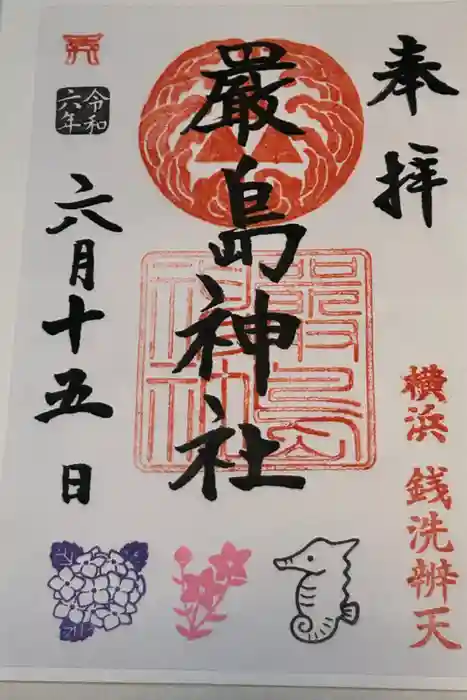 奉拝
横浜 銭洗辨天
厳島神社
嚴島神社
令和六年
六月十五日